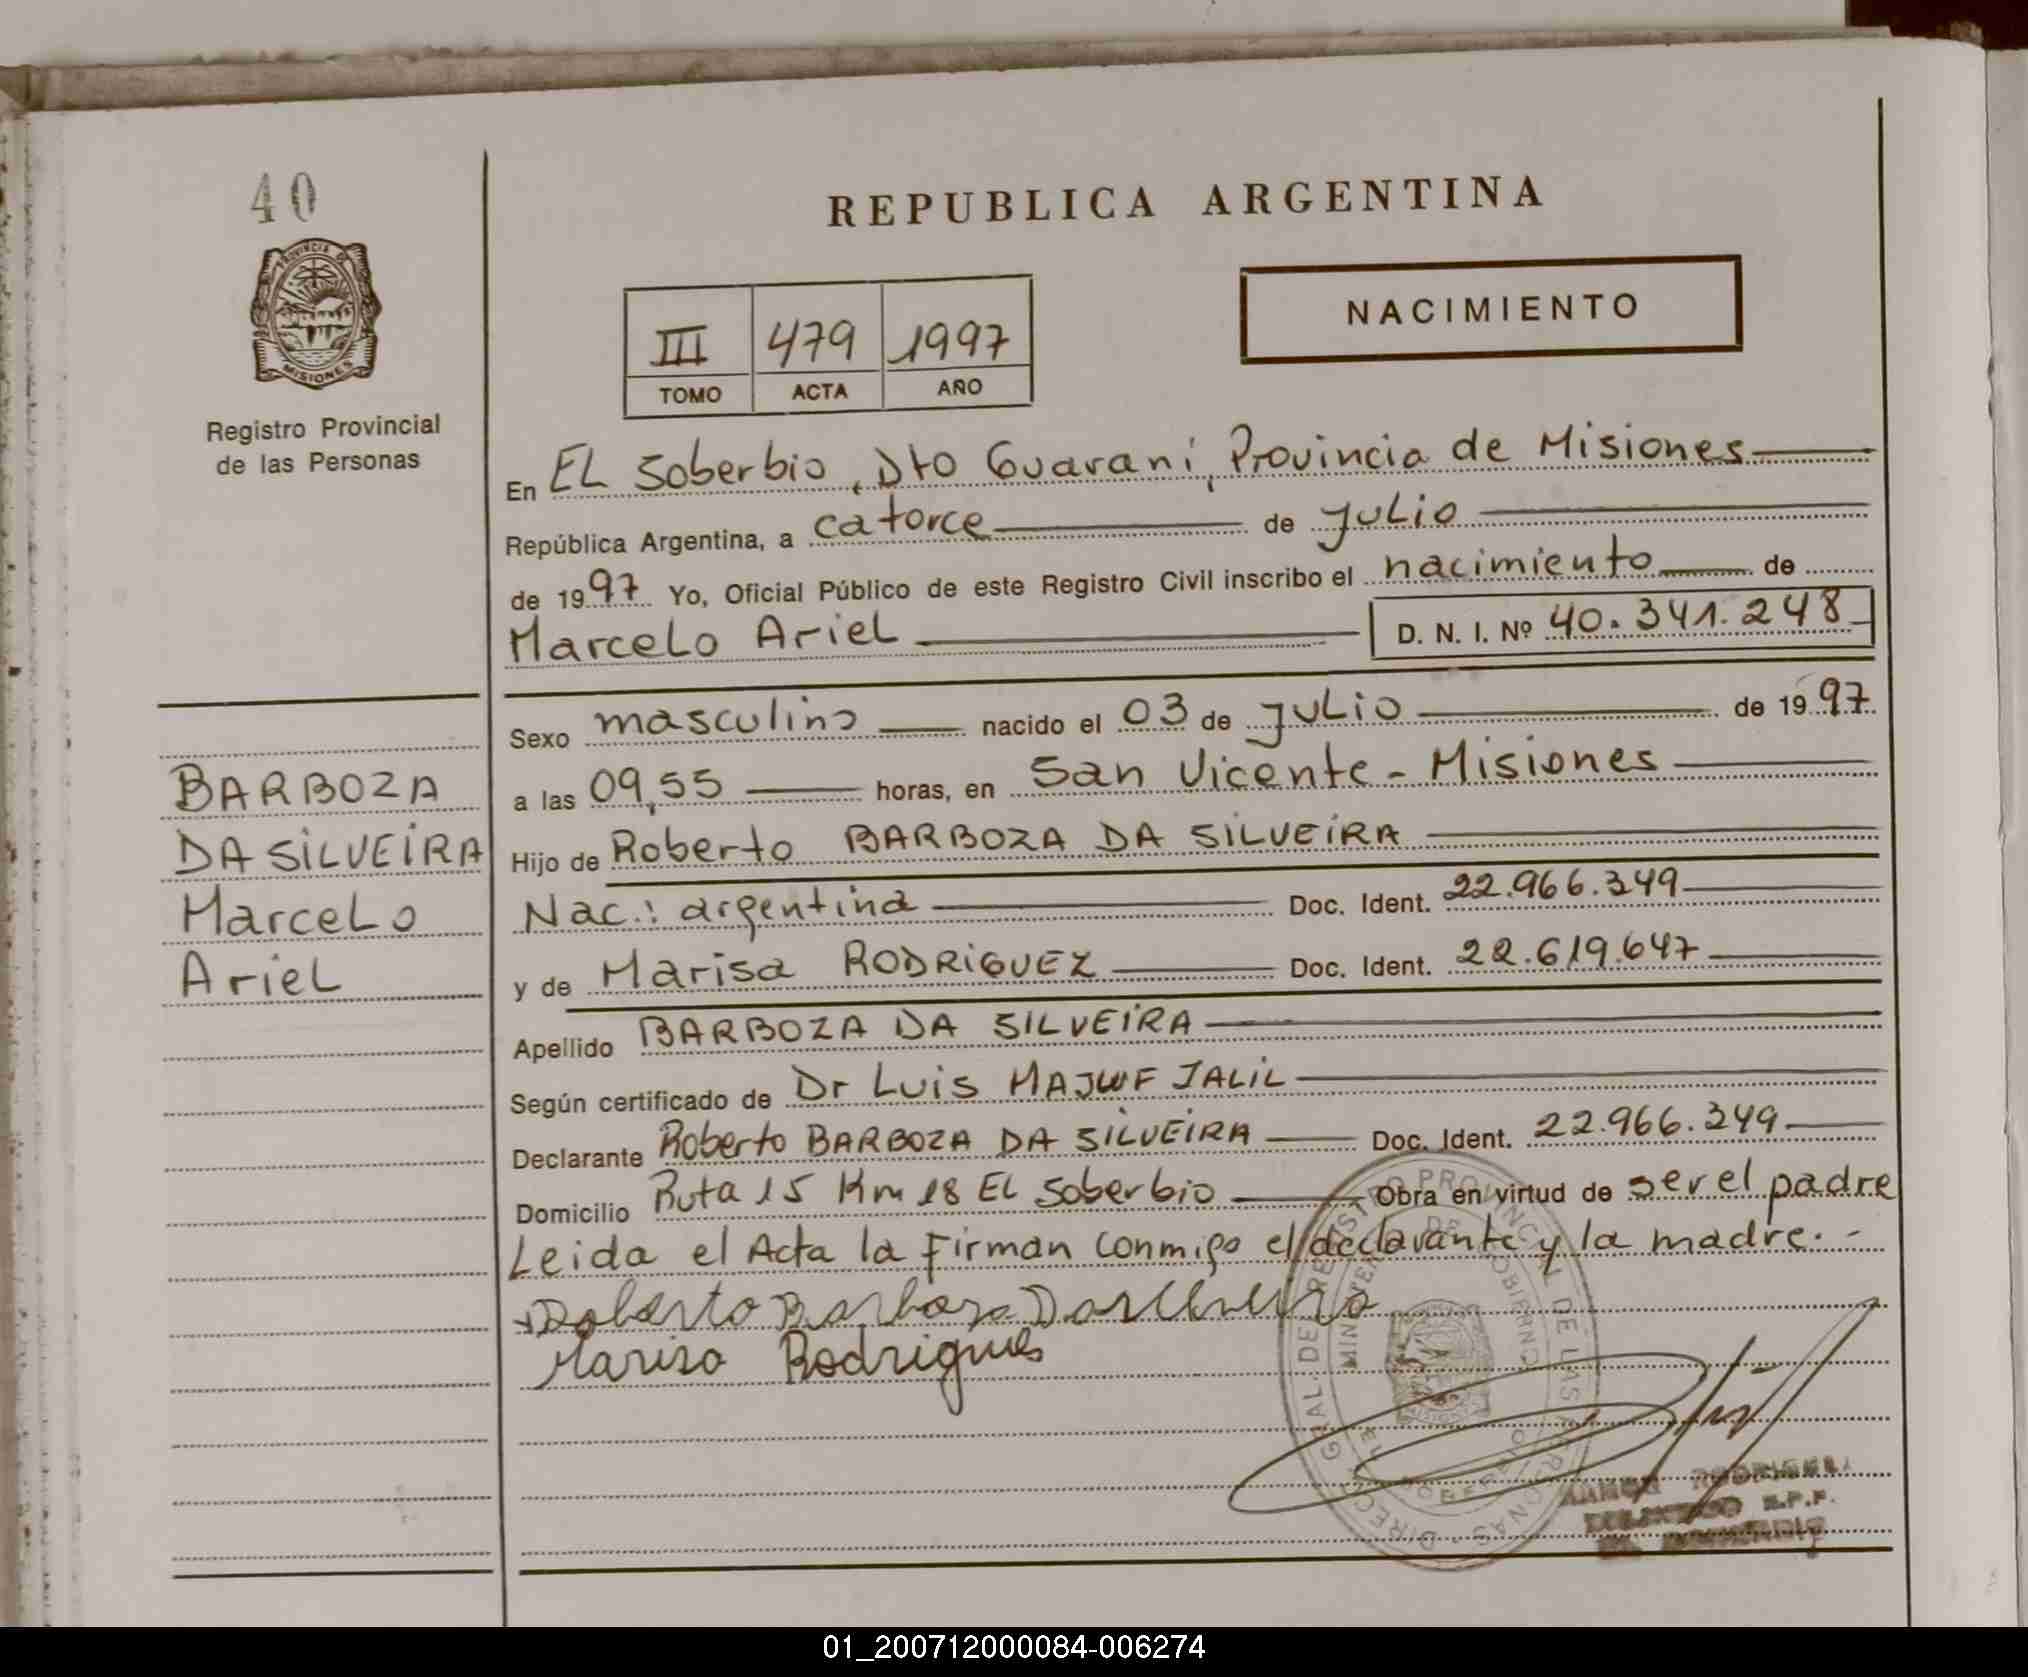 40
PROVINCIA DE
MISIONES
Registro Provincial
de las Personas
REPUBLICA ARGENTINA
NACIMIENTO
III 479 1997
TOMO ACTA AÑO
En EL Soberbio, Dto Guaraní, Provincia de Misiones
República Argentina, a catorce de julio
de 1997 Yo, Oficial Público de este Registro Civil inscribo el nacimiento de
Marcelo Ariel D. N. I. Nº 40.341.248
BARBOZA
DA SILVEIRA
Marcelo
Ariel
Sexo masculino nacido el 03 de julio de 1997
a las 09,55 horas, en San Vicente - Misiones
Hijo de Roberto BARBOZA DA SILVEIRA
Nac.: argentina Doc. Ident. 22.966.349
y de Marisa RODRIGUEZ Doc. Ident. 22.619.647
Apellido BARBOZA DA SILVEIRA
Según certificado de Dr Luis MAJUF JALIL
Declarante Roberto BARBOZA DA SILVEIRA Doc. Ident. 22.966.349
Domicilio Ruta 15 Km 18 EL Soberbio Obra en virtud de ser el padre
Leida el Acta la Firman conmigo el declarante y la madre. -
Roberto Barboza Da
Marisa Rodrigues
RODRIGUEZ
01_200712000084-006274